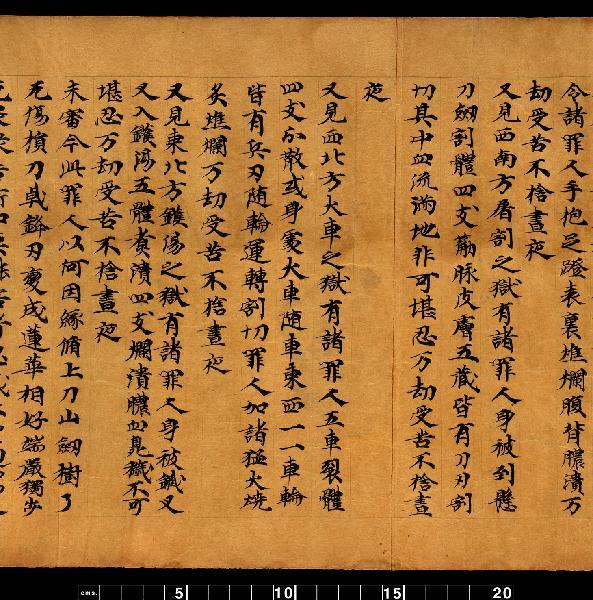 令諸罪人手抱足蹬表裏燋爛腹背膿潰万
劫受苦不捨晝夜
又見西南方屠割之獄有諸罪人身被到懸
刀劔割體四支蓏脉皮膚五蔵皆有刀刃割
切其中血流滿地非可堪忍万劫受苦不捨晝
夜
又見西北方火車之獄有諸罪人五車裂體
四支分散或身處火車隨車東西一一車輪
皆有兵刃随輪運轉割切罪人加諸猛火燒
炙燋爛万劫受苦不捨晝夜
又見東北方鑊湯之獄有諸罪人身被鐵叉
又入鑊湯五體煮潰四支爛潰膿血臰穢不可
堪忍万劫受苦不捨晝夜
未審今此罪人以何因緣脩上刀山劔樹了
无傷損刀戟鋒刃變成蓮華相好端嚴獨步
cms. 5 10 15 20